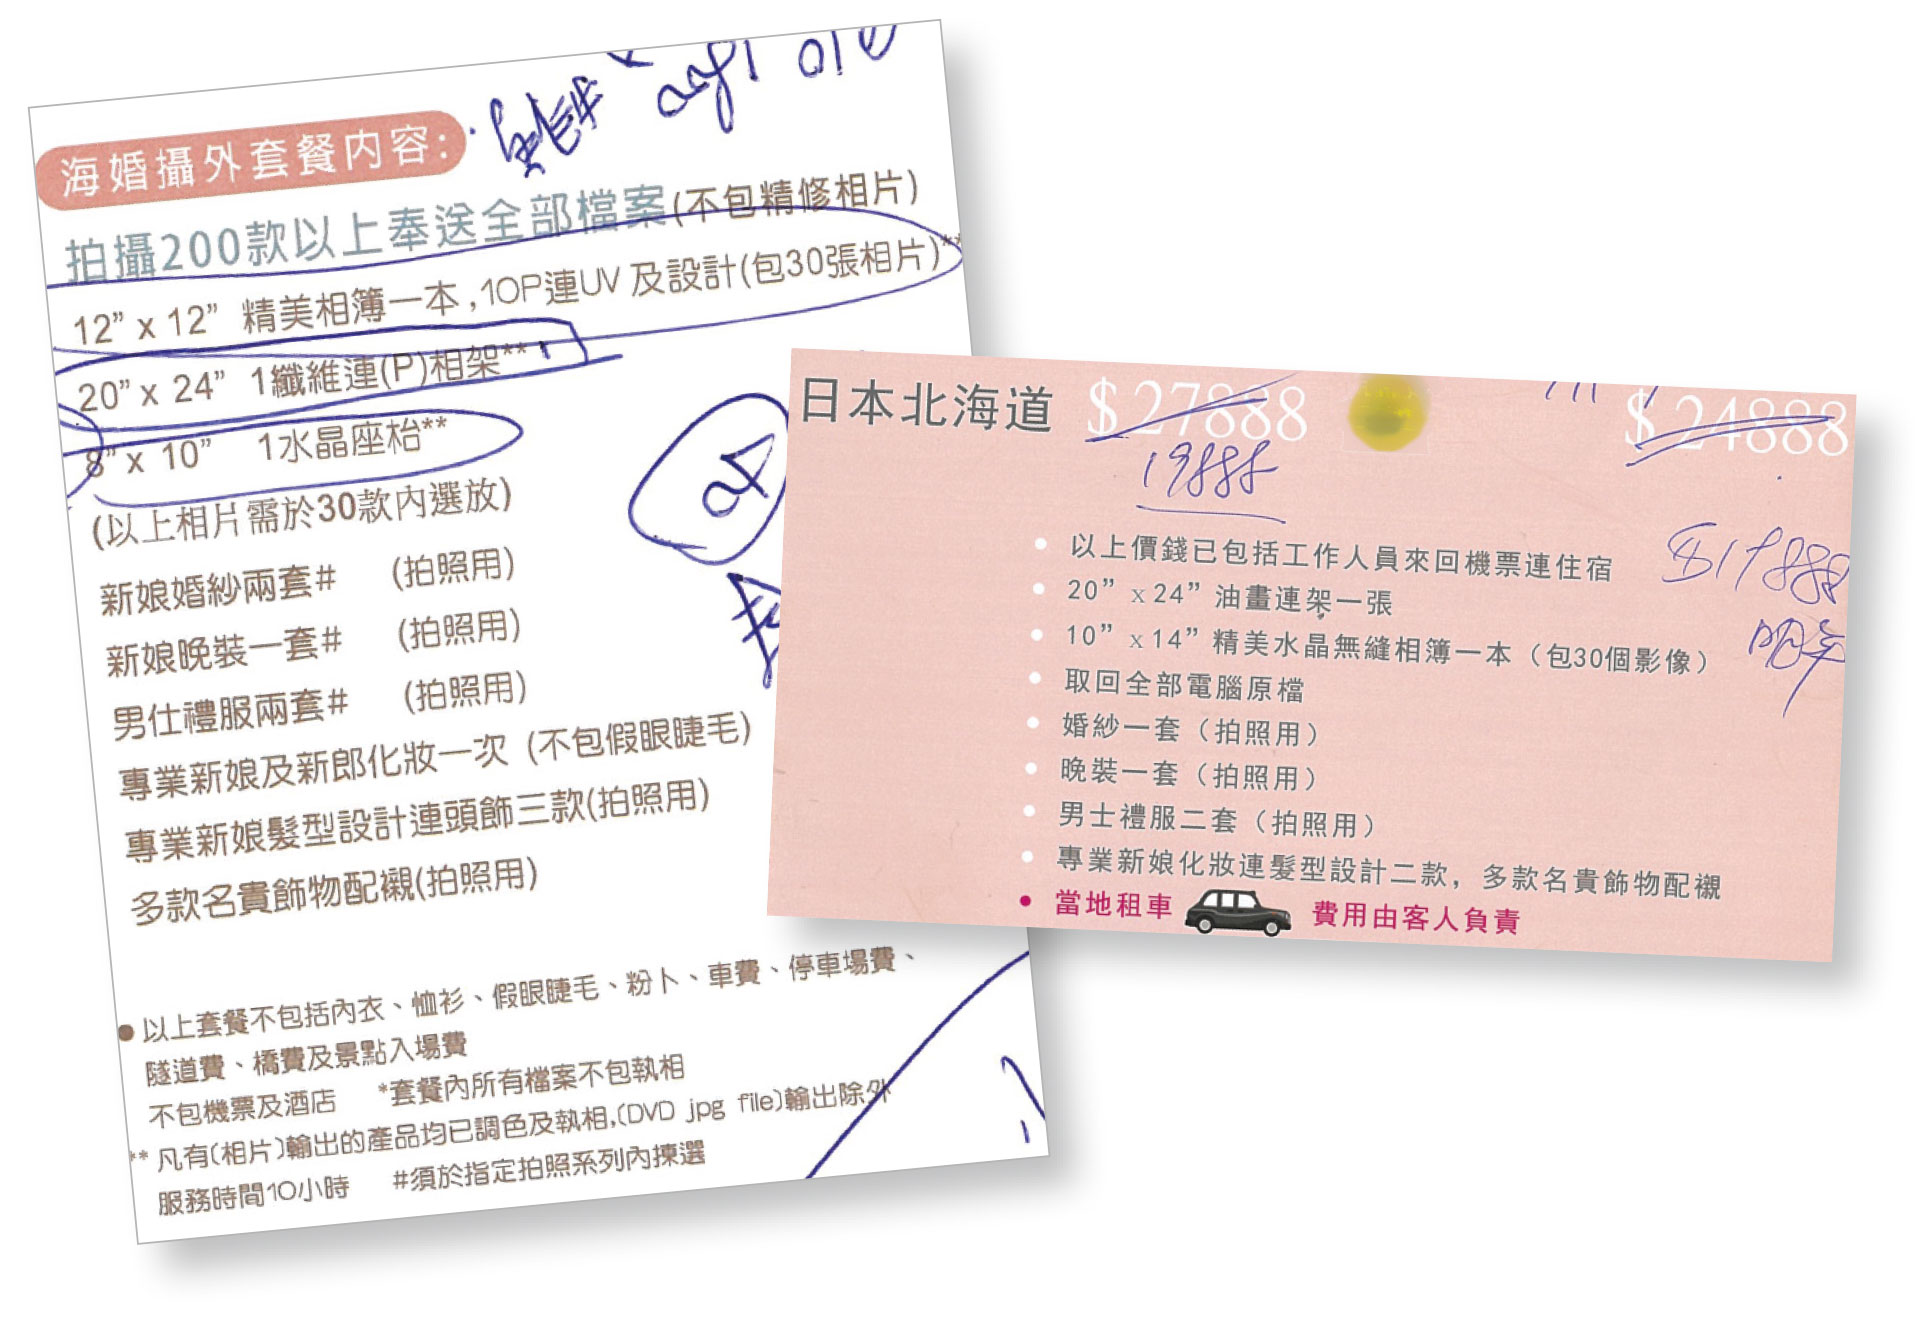 海婚攝外套餐内容:
拍攝200款以上奉送全部檔案(不包精修相片)
12” x 12” 精美相簿一本,10P連UV 及設計(包30張相片)**
20” x 24” 1纖維連(P)相架**
8” x 10” 1水晶座枱**
(以上相片需於30款內選放)
新娘婚紗兩套# (拍照用)
新娘晚裝一套# (拍照用)
男仕禮服兩套# (拍照用)
專業新娘及新郎化妝一次 (不包假眼睫毛)
專業新娘髮型設計連頭飾三款(拍照用)
多款名貴飾物配襯(拍照用)
● 以上套餐不包括內衣、恤衫、假眼睫毛、粉卜、車費、停車場費、
隧道費、橋費及景點入場費
不包機票及酒店 *套餐內所有檔案不包執相
** 凡有(相片)輸出的產品均已調色及執相,(DVD jpg file)輸出除外
服務時間10小時 #須於指定拍照系列內揀選
日本北海道 $27888 $24888
19888
$17888
明年
• 以上價錢已包括工作人員來回機票連住宿
• 20” x 24” 油畫連架一張
• 10” x 14” 精美水晶無縫相簿一本（包30個影像）
• 取回全部電腦原檔
• 婚紗一套（拍照用）
• 晚裝一套（拍照用）
• 男士禮服二套（拍照用）
• 專業新娘化妝連髮型設計二款，多款名貴飾物配襯
• 當地租車 費用由客人負責